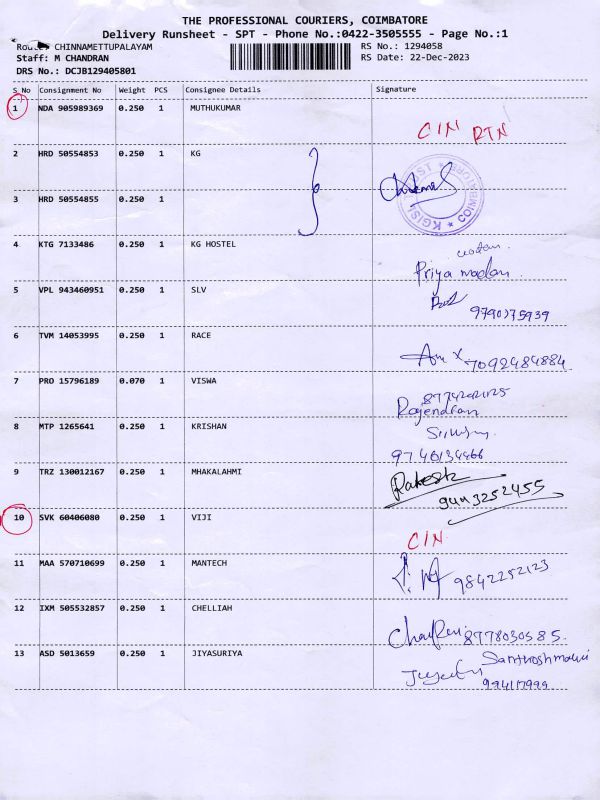 THE PROFESSIONAL COURIERS, COIMBATORE
Delivery Runsheet - SPT - Phone No.:0422-3505555 - Page No.:1
Route: CHINNAMETTUPALAYAM
RS No.: 1294058
Staff: M CHANDRAN
RS Date: 22-Dec-2023
DRS No.: DCJB129405801
S No Consignment No Weight PCS Consignee Details Signature
1 NDA 905989369 0.250 1 MUTHUKUMAR
CIN RTN
2 HRD 50554853 0.250 1 KG
KGISL * COIMBATORE *
3 HRD 50554855 0.250 1
4 KTG 7133486 0.250 1 KG HOSTEL
Priya madan
5 VPL 943460951 0.250 1 SLV
9790775939
6 TVM 14053995 0.250 1 RACE
7092484884
7 PRO 15796189 0.070 1 VISWA
Rajendran
8 MTP 1265641 0.250 1 KRISHAN
9746134466
9 TRZ 130012167 0.250 1 MHAKALAHMI
Rakesh
9443252455
10 SVK 60406080 0.250 1 VIJI
CIN
11 MAA 570710699 0.250 1 MANTECH
9842252123
12 IXM 505532857 0.250 1 CHELLIAH
8778030585
13 ASD 5013659 0.250 1 JIYASURIYA